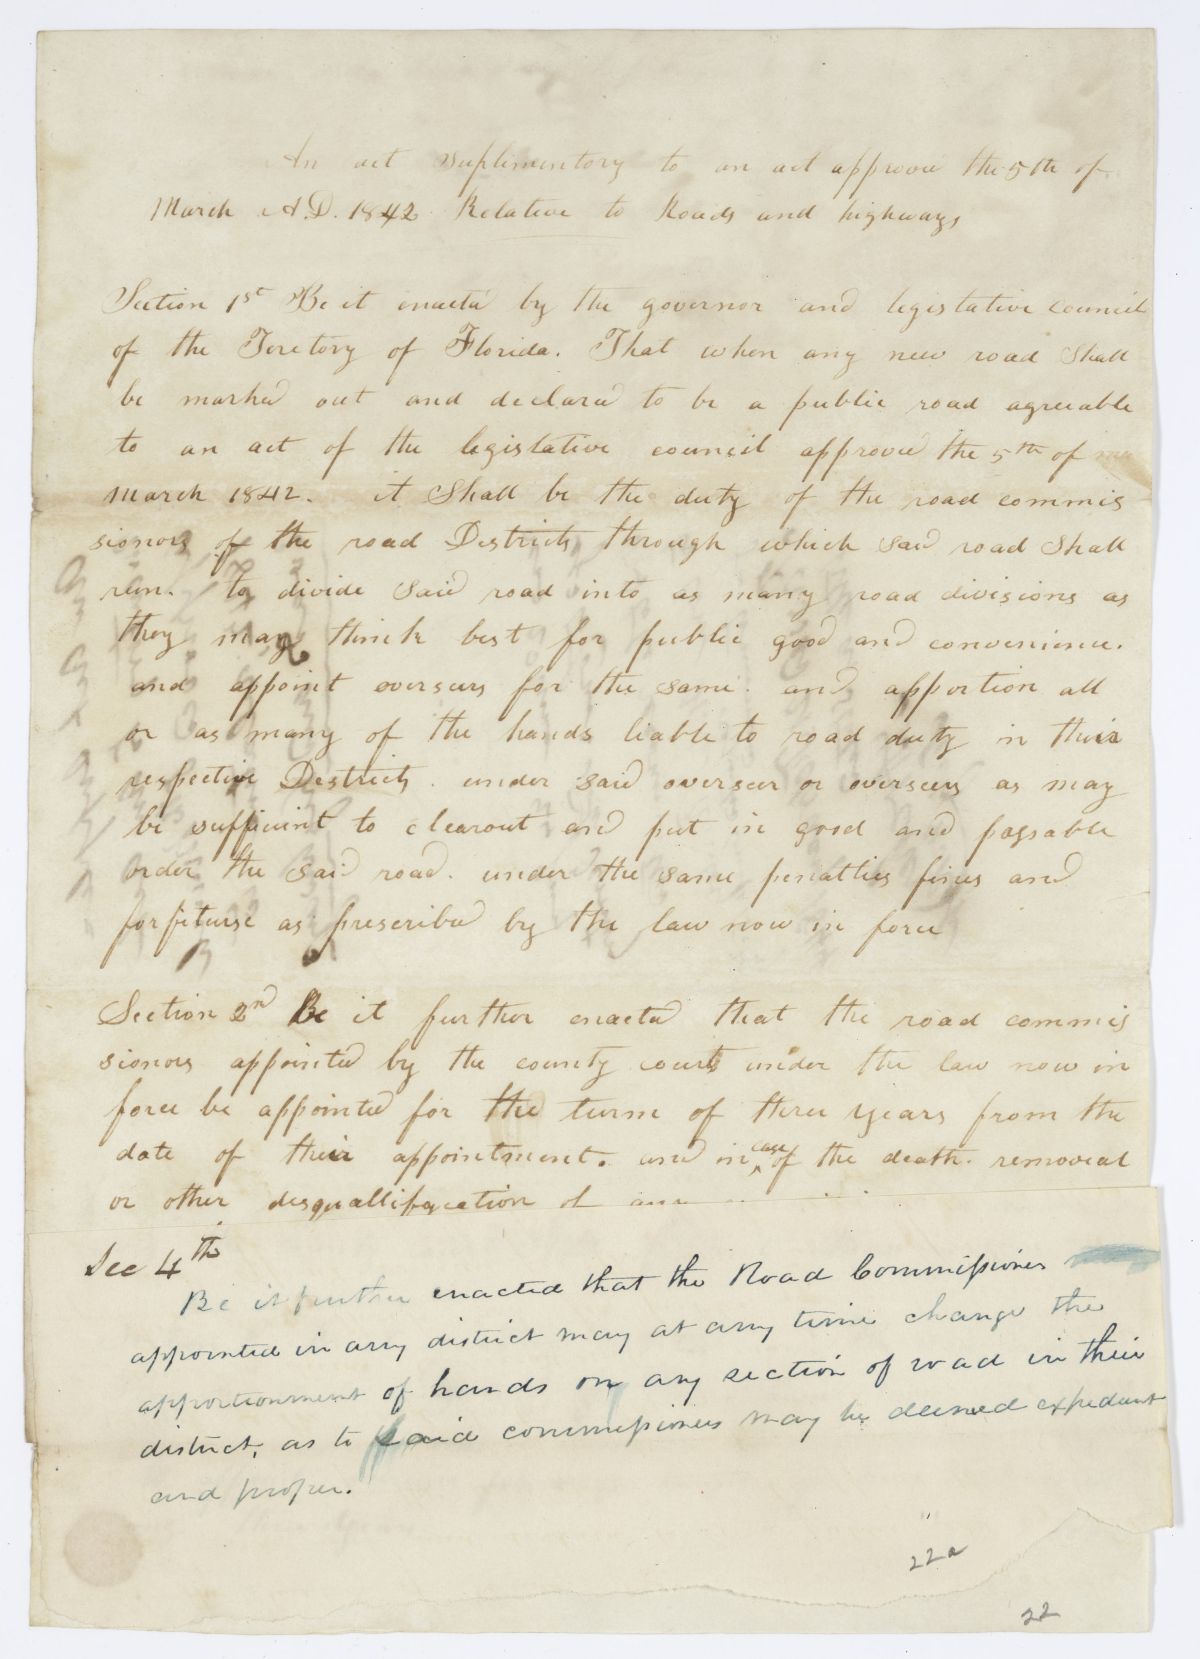 An act Suplimentory to an act approvd the 5th of
March A.D. 1842 Relative to Roads and highways
Section 1st Be it enacted by the governor and legistative council
of the Teretory of Florida. That when any new road Shall
be markd out and declard to be a public road agreeable
to an act of the legistative council approvd the 5th of
March 1842. it Shall be the duty of the road commis
sionors of the road Destricts through which said road Shall
run. to divide said road into as many road divisions as
they may think best for public good and convenience.
and appoint overseers for the same and apportion all
or as many of the hands liable to road duty in their
respective Destricts. under said overseer or overseers as may
be sufficient to clearout and put in good and passable
order the said road. under the same penalties fines and
forfeturse as prescribd by the law now in force
Section 2nd Be it further enacted that the road commis
sionors appointed by the county courts under the law now in
force be appointed for the turm of three years from the
date of their appointment. and in case of the death. removeal
or other desquallifycation of
Sec 4th
Be it further enacted that the Road Commissioners
appointed in any district may at any time change the
apportionment of hands on any section of road in their
district, as to said commissioners may be deemed expedient
and proper.
22a
22